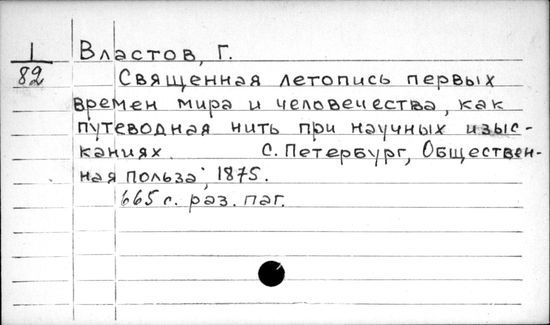 1/82 Властов, Г.
Священная летопись первых
времен мира и человечества, как
путеводная нить при научных изыс-
каниях. С. Петербург, Обществен-
ная польза, 1875.
665 с. раз. паг.